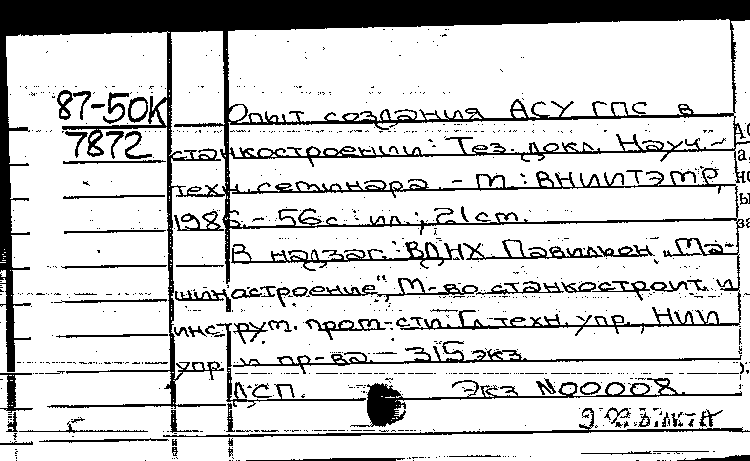 87-50К
7872
Опыт создания АСУ ГПС в
станкостроении: Тез. докл. Науч.-
техн. семинара. - М.: ВНИИТЭМР,
1986. - 56с.: ил.; 21см.
В надзаг.: ВДНХ. Павильон „Ма-
шиностроение", М-во станкостроит. и
инструм. пром-сти. Гл. техн. упр., НИИ
упр. и пр-ва. - 315 экз.
ДСП. Экз N00008.